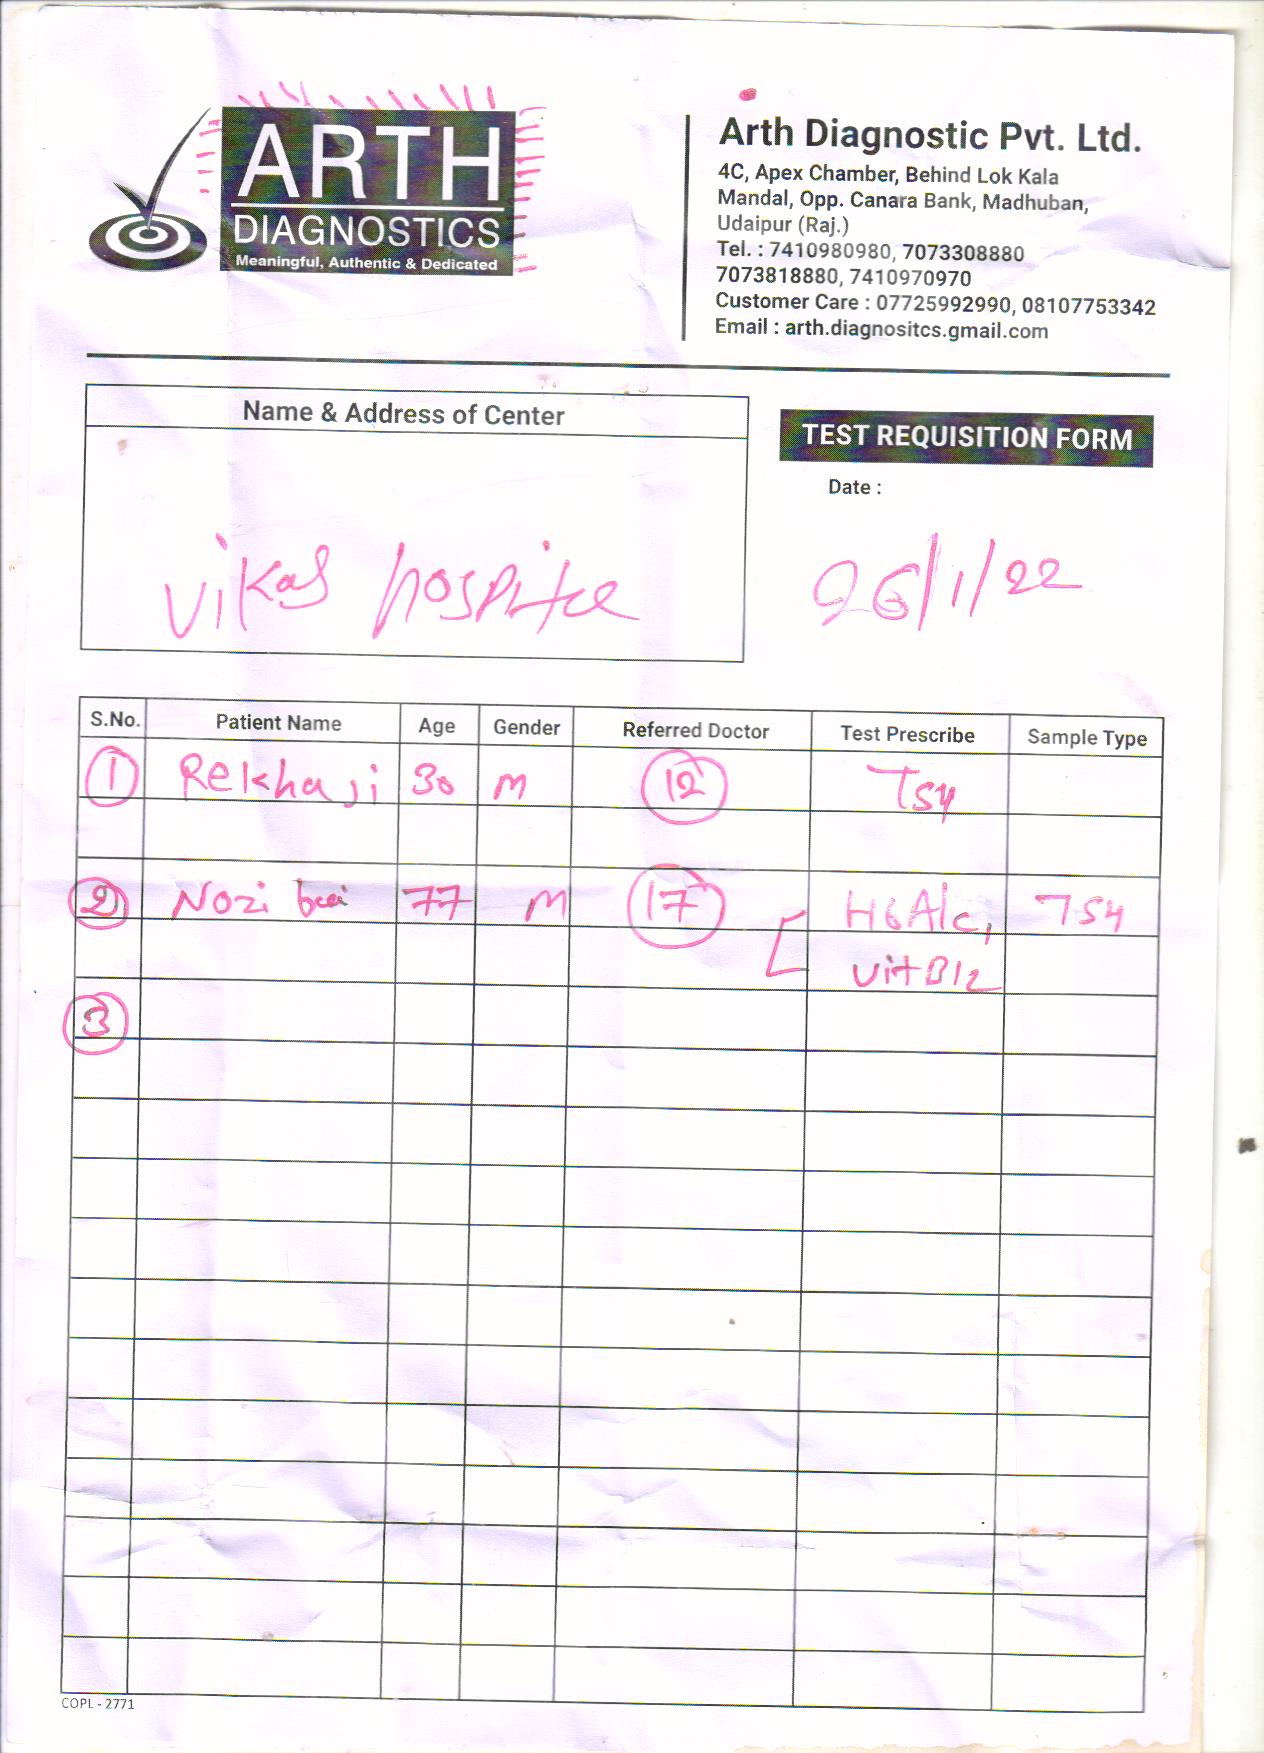 ARTH
DIAGNOSTICS
Meaningful, Authentic & Dedicated
Arth Diagnostic Pvt. Ltd.
4C, Apex Chamber, Behind Lok Kala
Mandal, Opp. Canara Bank, Madhuban,
Udaipur (Raj.)
Tel. : 7410980980, 7073308880
7073818880, 7410970970
Customer Care : 07725992990, 08107753342
Email : arth.diagnositcs.gmail.com
Name & Address of Center
Vikas hospital
TEST REQUISITION FORM
Date :
26/1/22
S.No. Patient Name Age Gender Referred Doctor Test Prescribe Sample Type
1 Rekha ji 30 M 12 TSH
2 Nozi bai 77 M 17 HbA1c, TSH
Vit B12
3
COPL - 2771